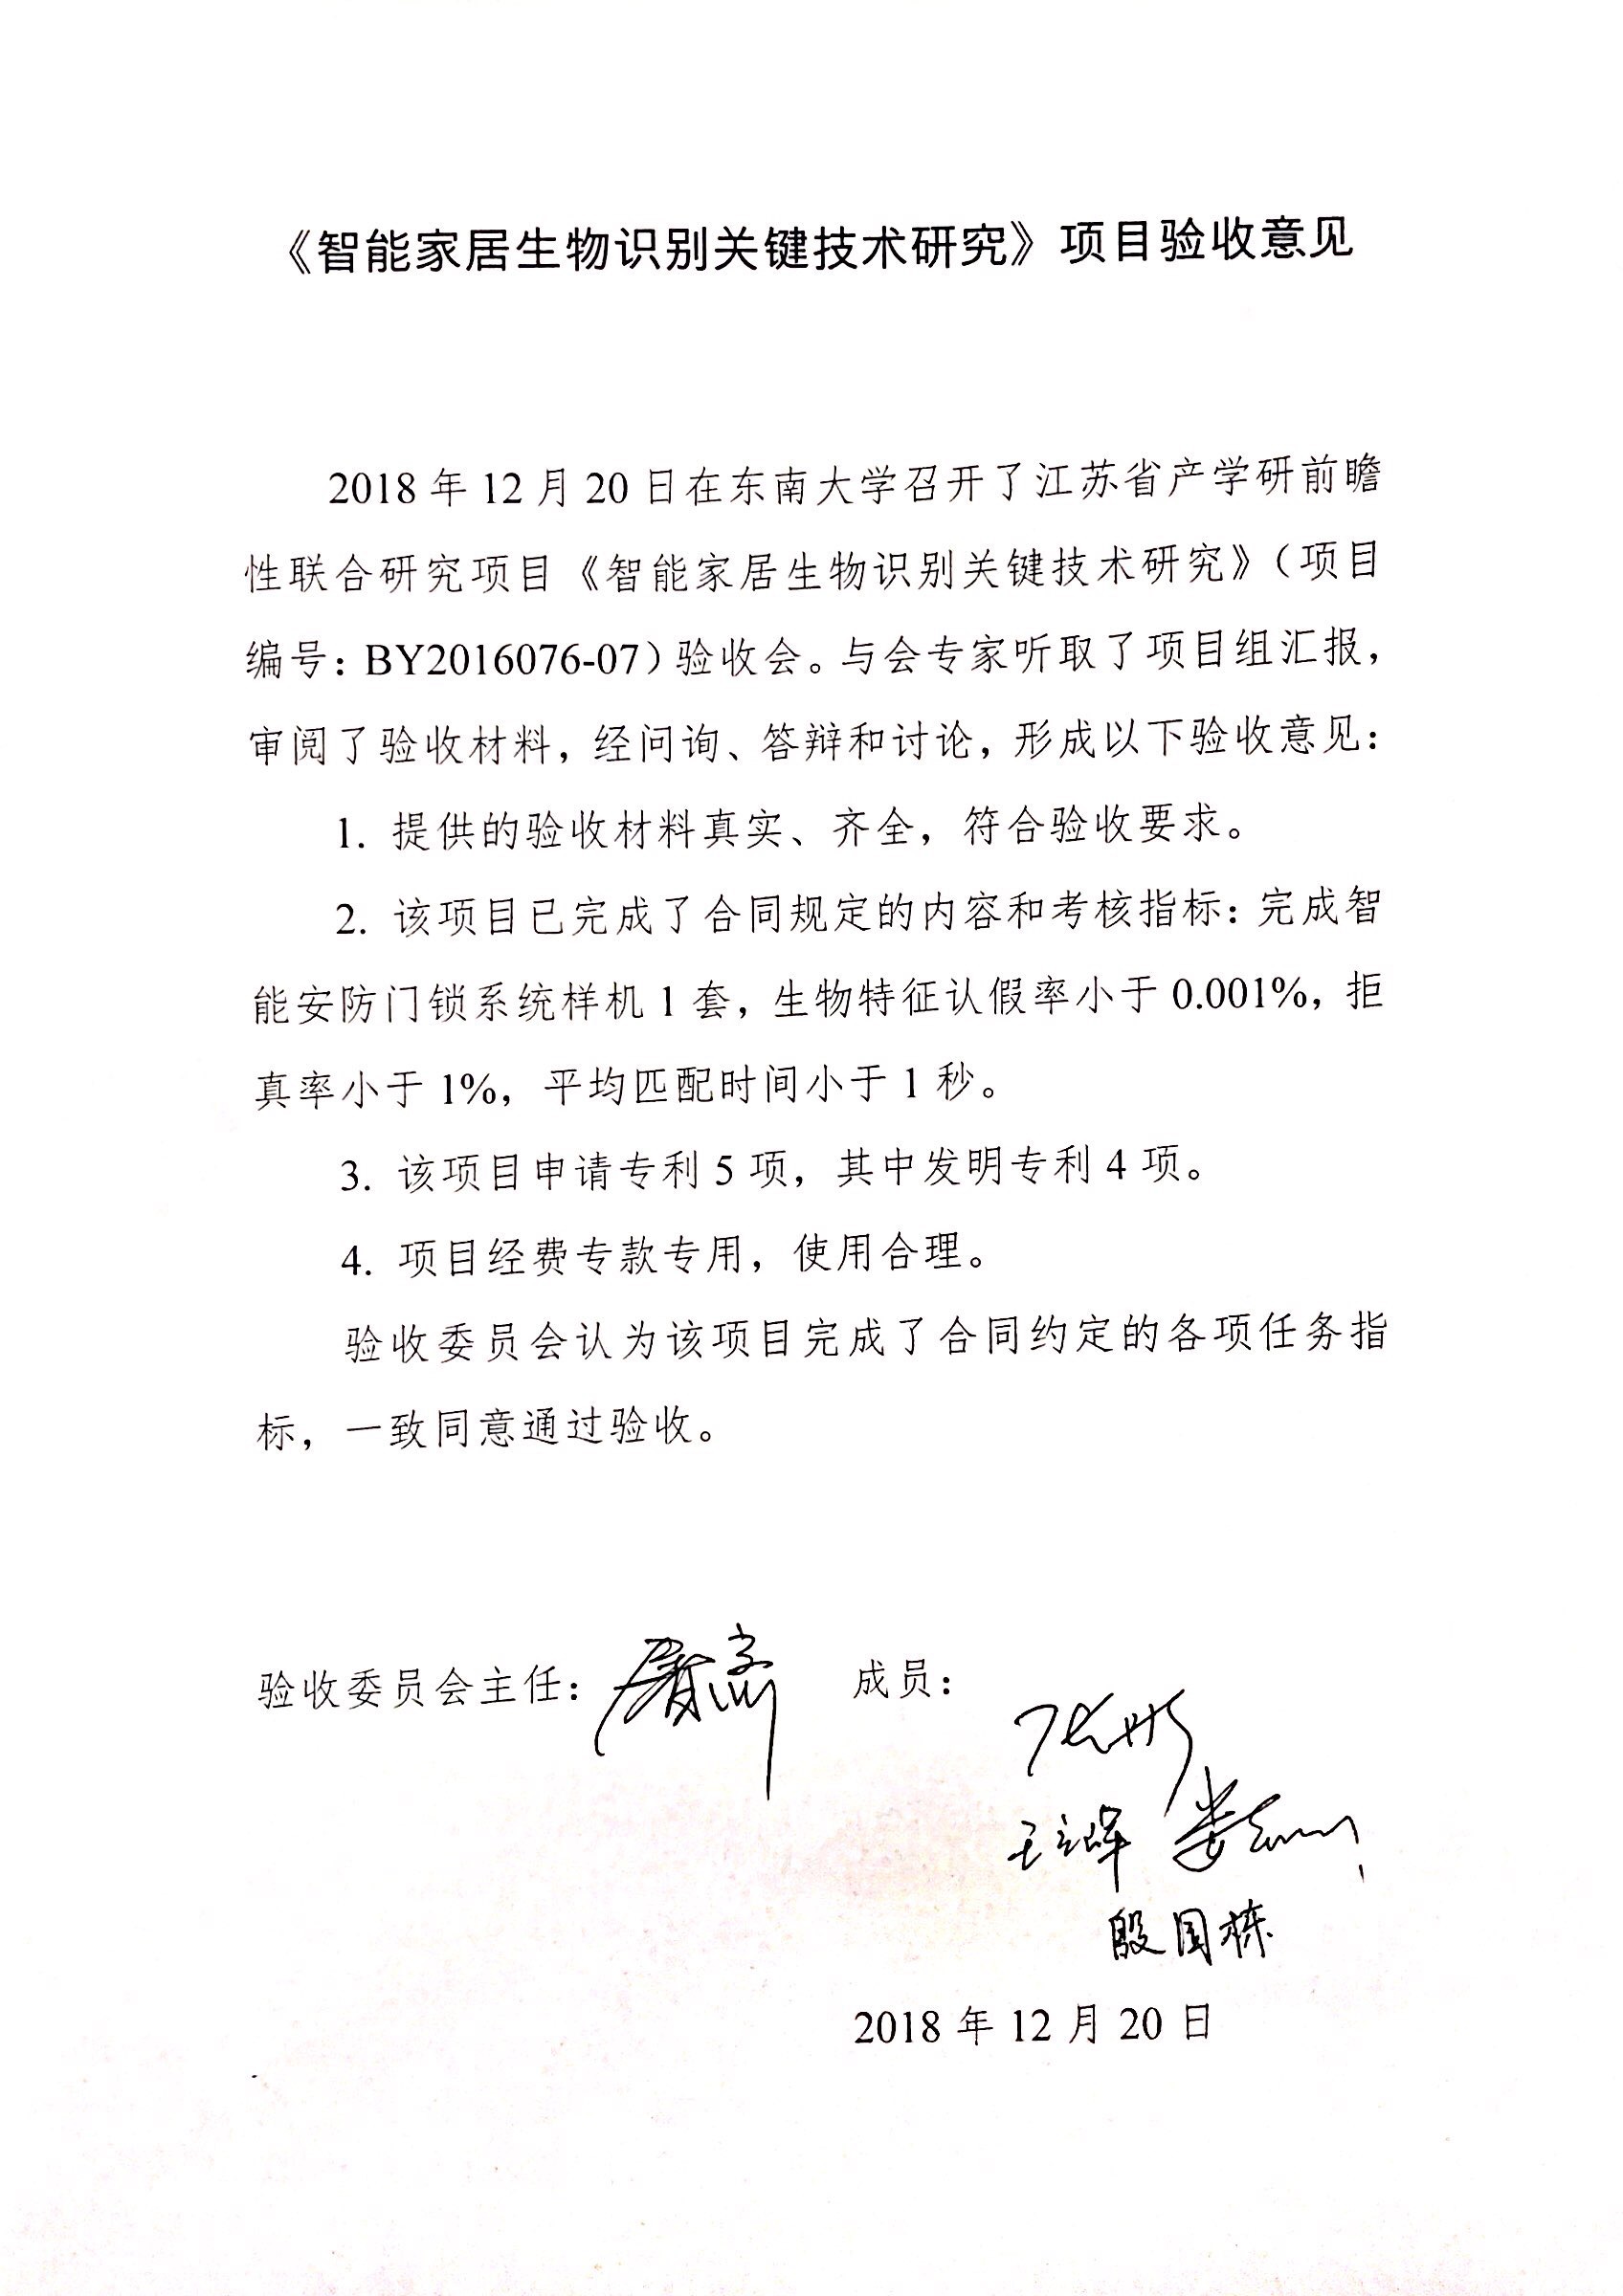 《智能家居生物识别关键技术研究》项目验收意见
2018 年 12 月 20 日在东南大学召开了江苏省产学研前瞻
性联合研究项目《智能家居生物识别关键技术研究》（项目
编号：BY2016076-07）验收会。与会专家听取了项目组汇报，
审阅了验收材料，经问询、答辩和讨论，形成以下验收意见：
1. 提供的验收材料真实、齐全，符合验收要求。
2. 该项目已完成了合同规定的内容和考核指标：完成智
能安防门锁系统样机 1 套，生物特征认假率小于 0.001%，拒
真率小于 1%，平均匹配时间小于 1 秒。
3. 该项目申请专利 5 项，其中发明专利 4 项。
4. 项目经费专款专用，使用合理。
验收委员会认为该项目完成了合同约定的各项任务指
标，一致同意通过验收。
验收委员会主任： 成员：
殷国栋
2018 年 12 月 20 日